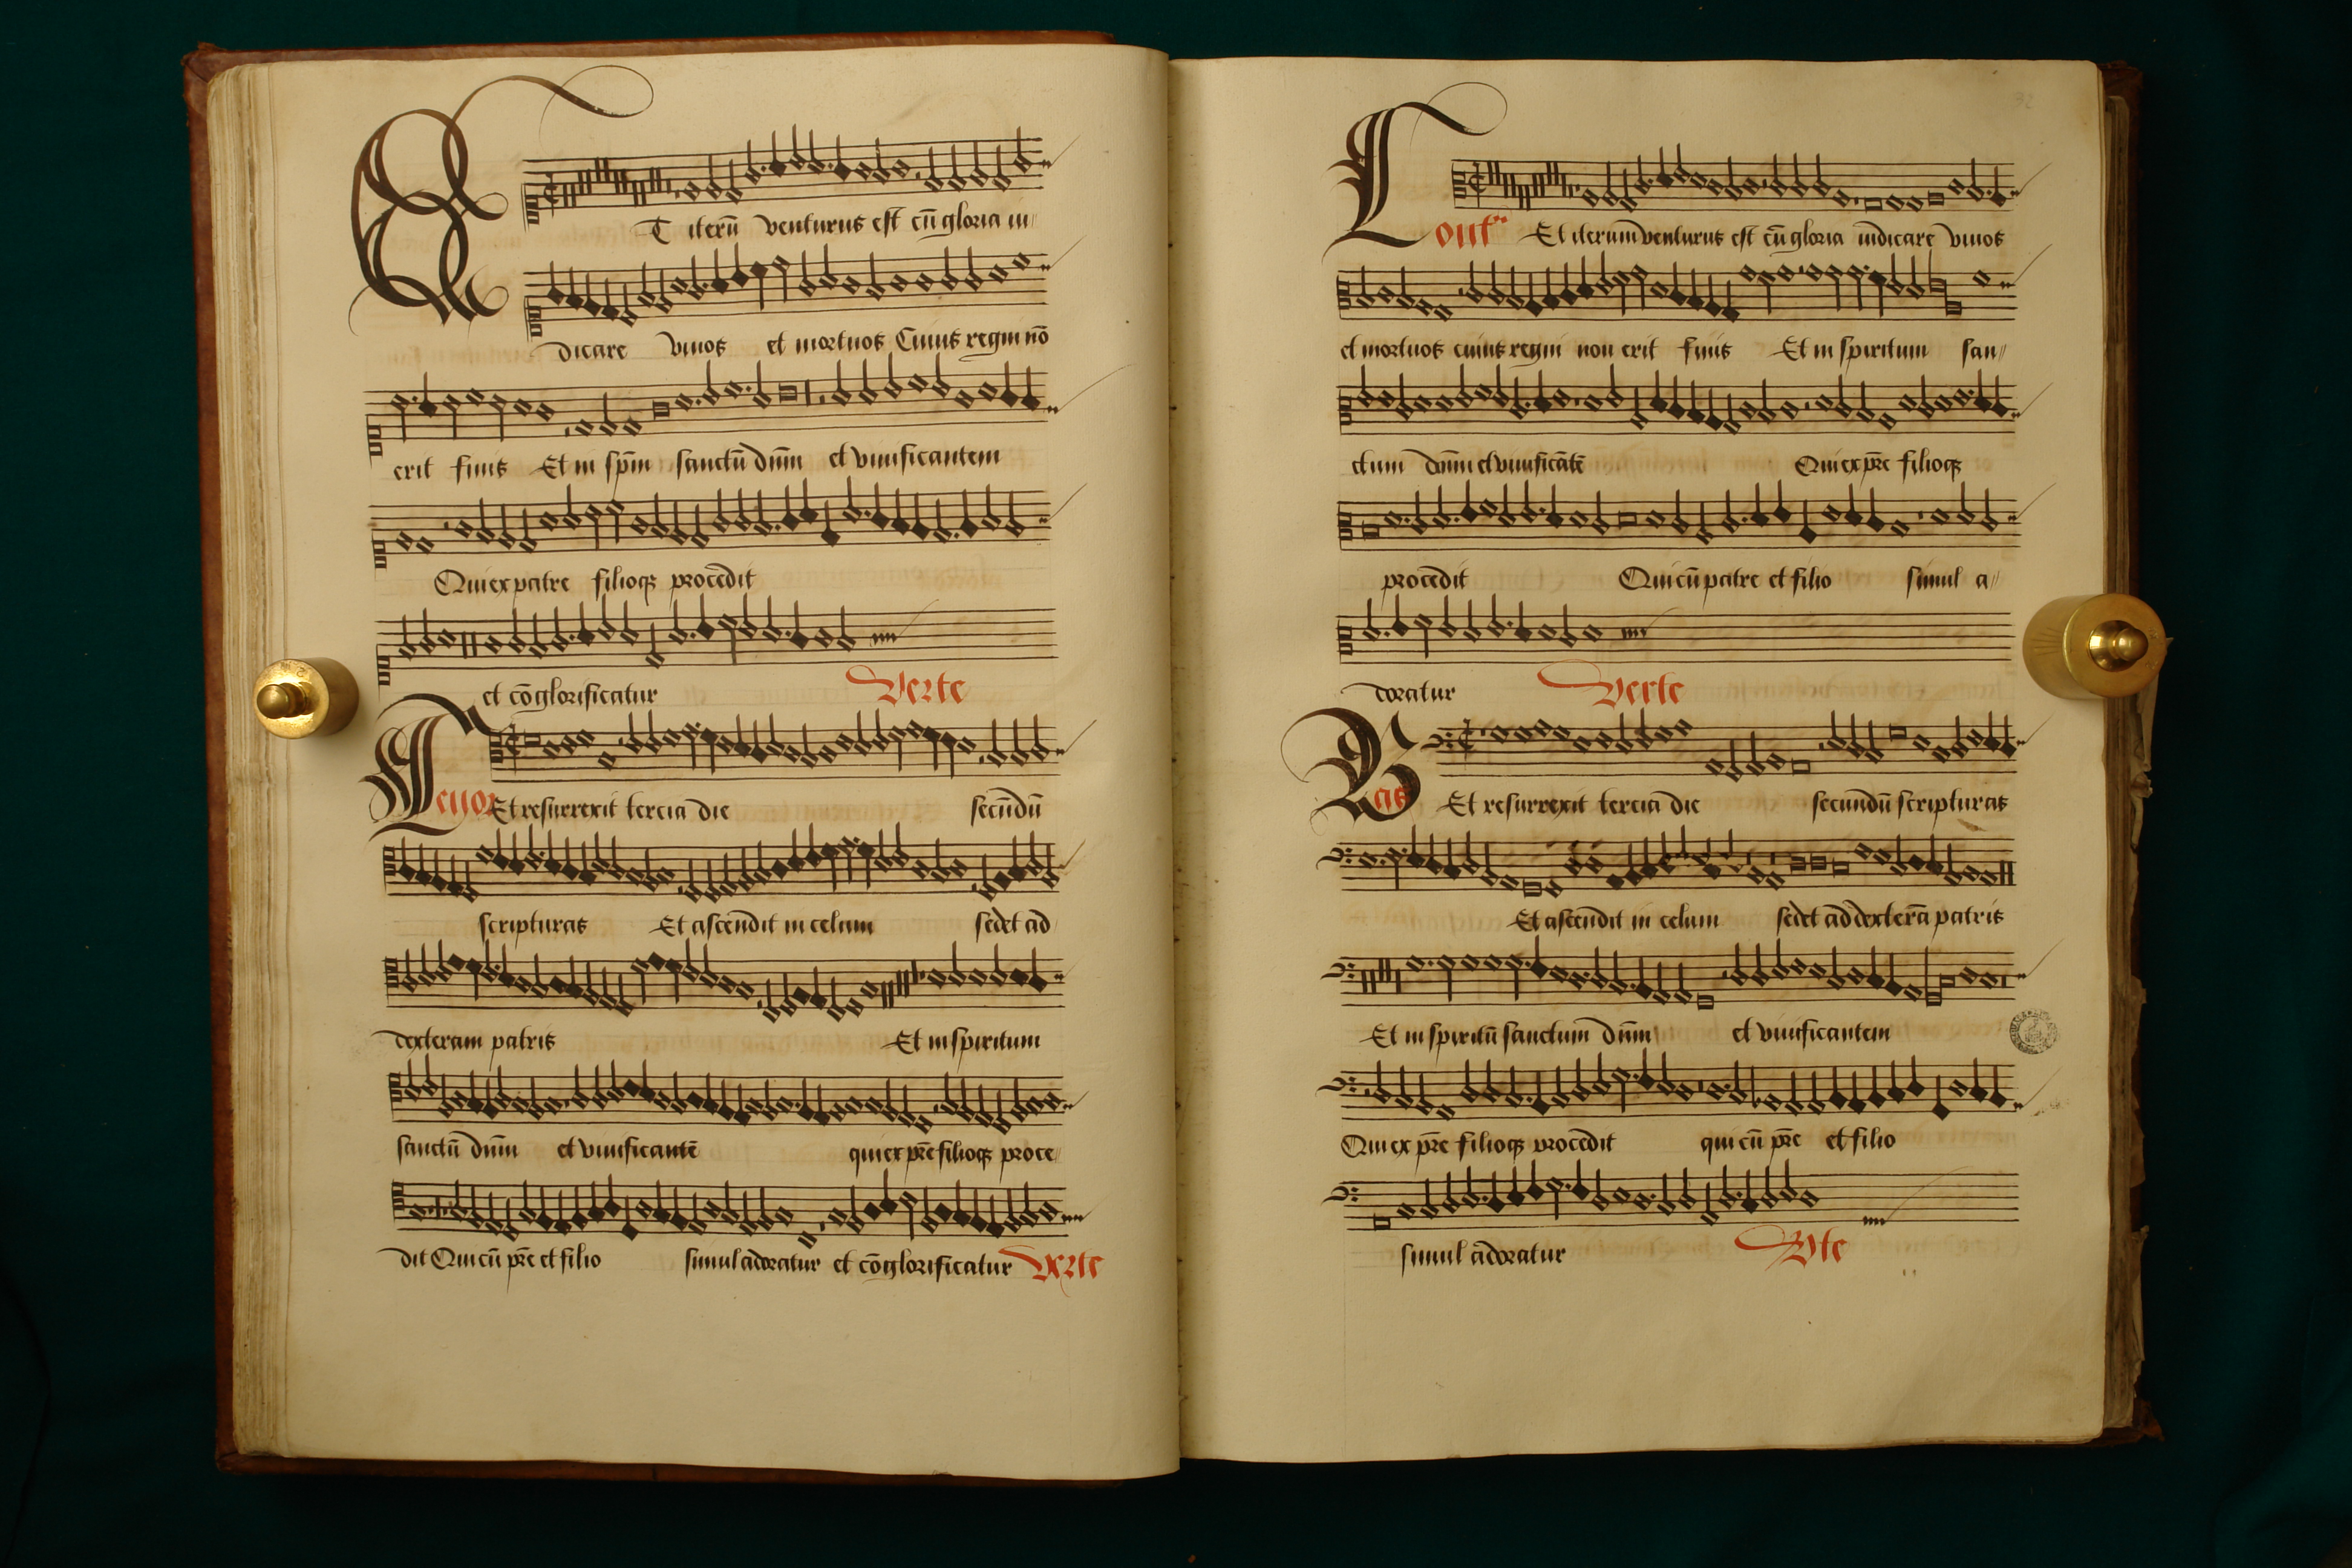 Et iterū venturus est cū gloria iu
dicare vivos et mortuos Cuius regni nō
erit finis Et in spm̄ sanctū dnm̄ et vivificantem
Qui ex patre filioqꝫ procedit
et cōglorificatur Verte
Tenor Et resurrexit tercia die secūdū
scripturas Et ascendit in celum sedet ad
dexteram patris Et in spiritum
sanctū dnm̄ et vivificantē qui ex pr̄e filioqꝫ proce
dit Qui cū pr̄e et filio simul adoratur et cōglorificatur Verte
32
Contra Et iterum venturus est cū gloria iudicare vivos
et mortuos cuius regni non erit finis Et in spiritum san
ctum dnm̄ et vivificātē Qui ex pr̄e filioqꝫ
procedit Qui cū patre et filio simul a
doratur Verte
Bas Et resurrexit tercia die secundū scripturas
Et ascendit in celum sedet ad dexterā patris
Et in spiritū sanctum dnm̄ et vivificantem
Qui ex pr̄e filioqꝫ procedit qui cū pr̄e et filio
simul adoratur Vte